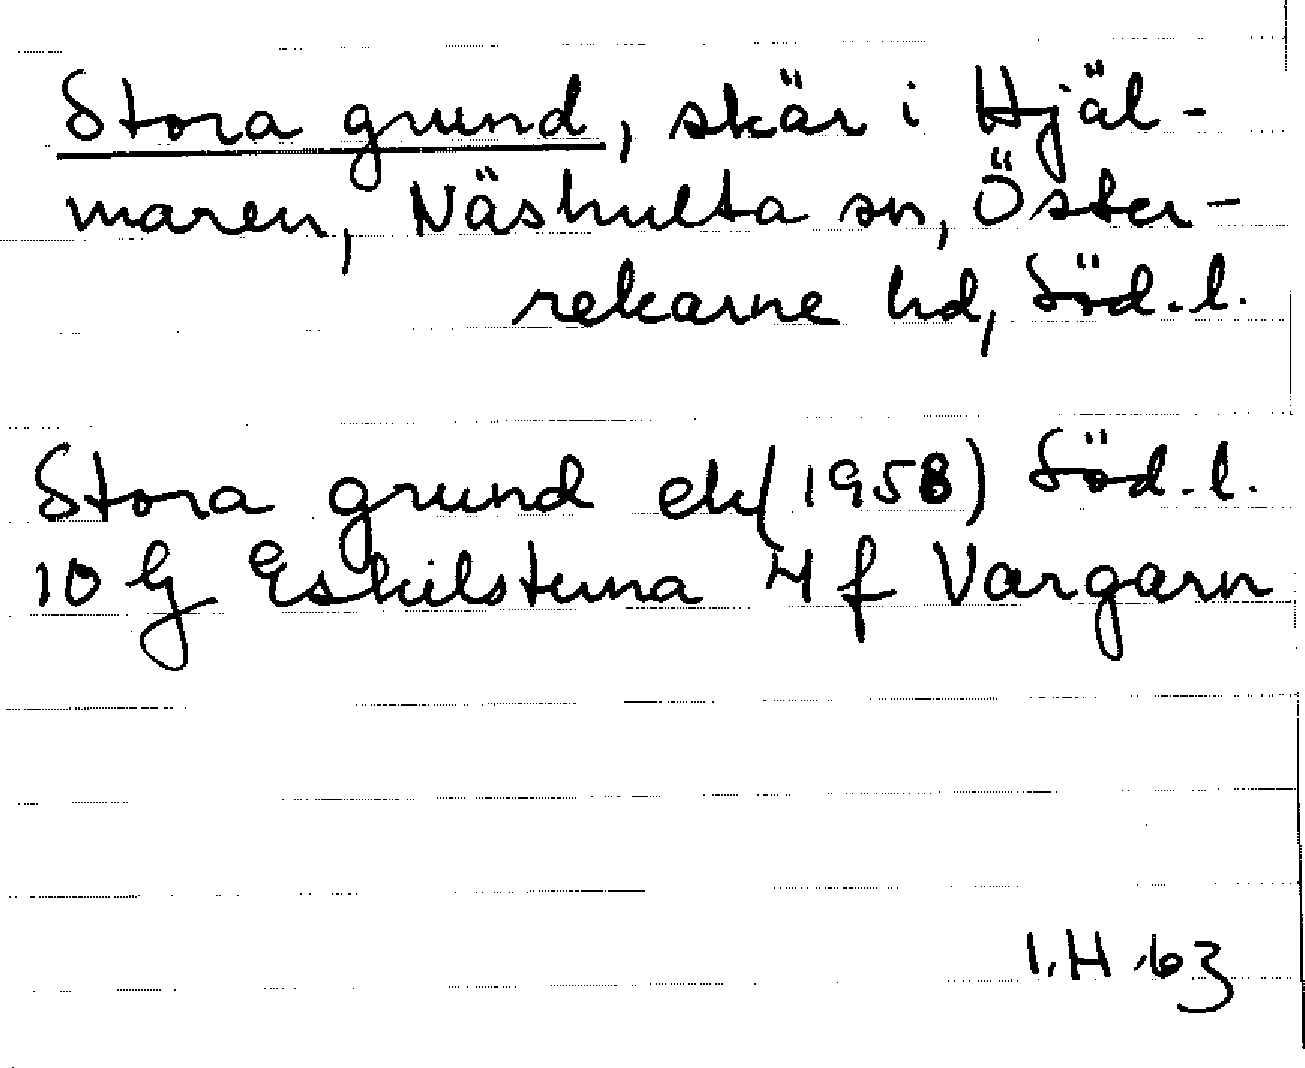 Stora grund, skär i Hjäl-
maren, Näshulta sn, Öster-
rekarne hd, Söd.l.
Stora grund ek (1958) Söd.l.
10 G Eskilstuna 4 f Vargarn
I.H.63